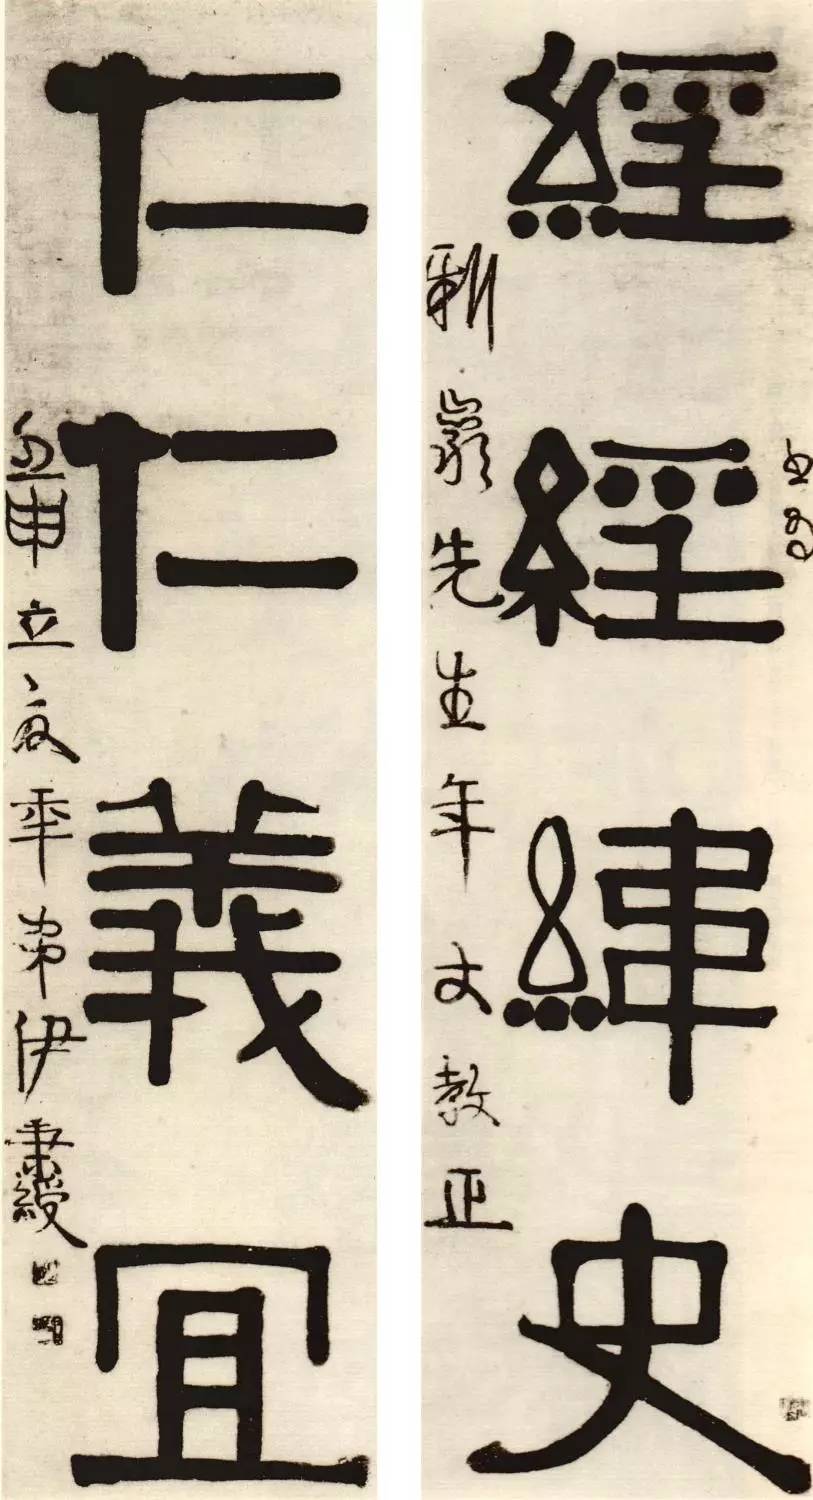 經經緯史
先生年丈教正
仁仁義宜
立夏年弟伊秉綬